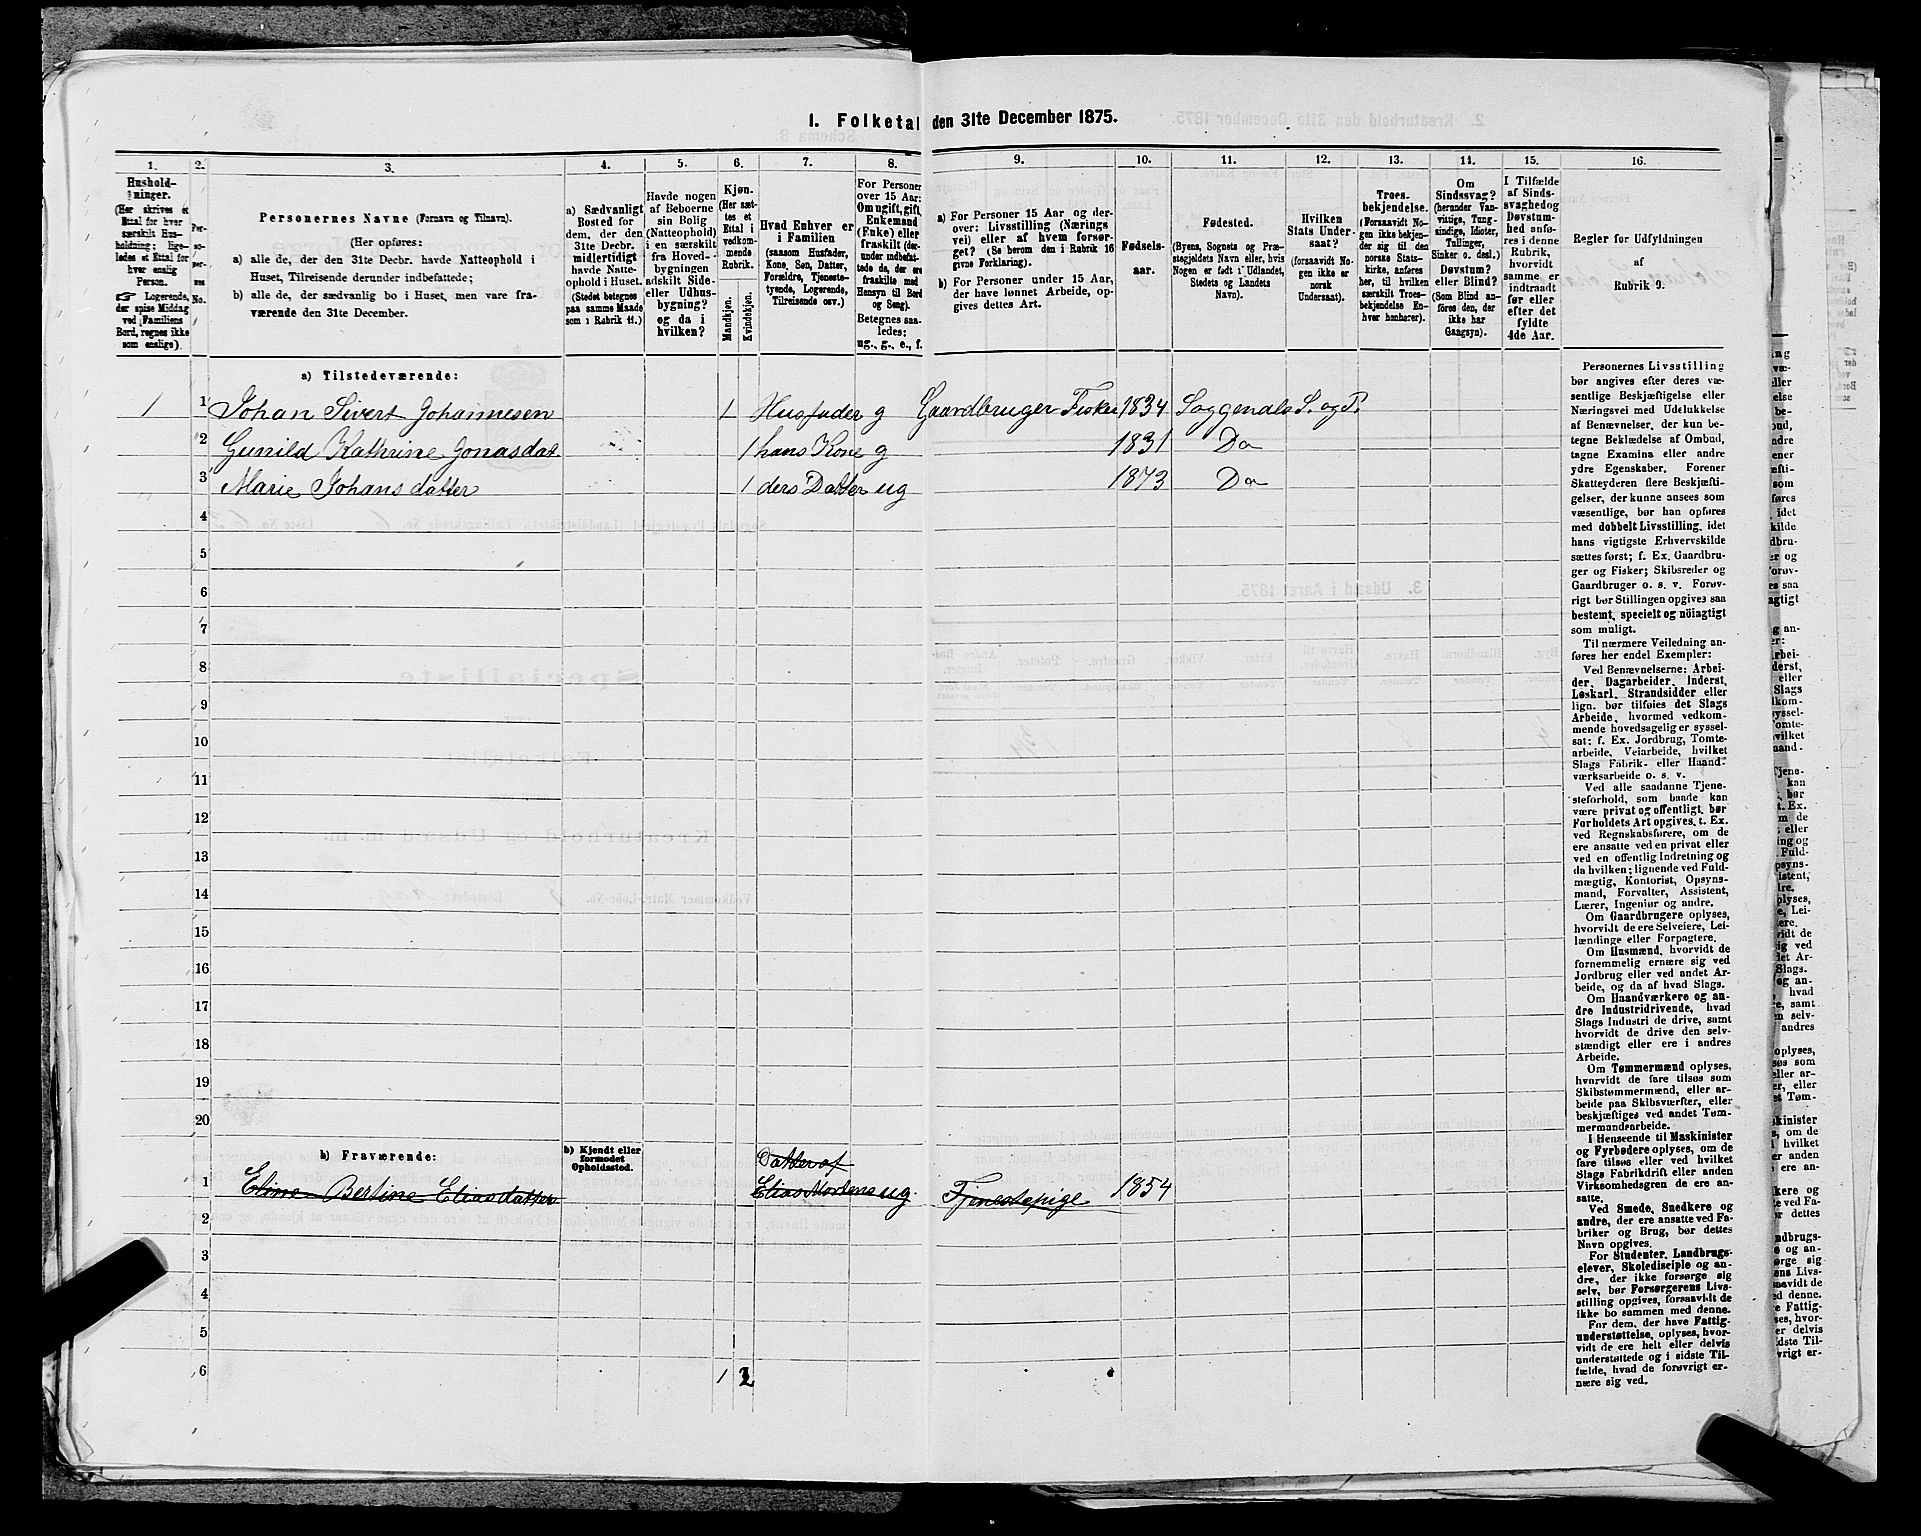 1. Folketal den 31te December 1875.
1. 2. 3. 4. 5. 6. 7. 8. 9. 10. 11. 12. 13. 14. 15. 16.
Hushold-
ninger.
(Her skrives et
Ettal for hver
særskilt Hus-
holdning; lige-
ledes et Ettal for
hver enslig
Person.
☞ Logerende,
der spise Middag
ved Familiens
Bord, regnes ikke
som enslige).
Per-
so-
ner-
nes
No.
Personernes Navne (Fornavn og Tilnavn).
(Her opføres:
a) alle de, der den 31te Decbr. havde Natteophold i
Huset, Tilreisende derunder indbefattede;
b) alle de, der sædvanlig bo i Huset, men vare fra-
værende den 31te December.
a) Sædvanligt
Bosted for
dem, der den
31te Decbr.
midlertidigt
havde Natte-
ophold i Huset.
(Stedet betegnes
paa samme Maade
som i Rubrik 11.)
Havde nogen
af Beboerne
sin Bolig
(Natteophold)
i en særskilt
fra Hoved-
bygningen
adskilt Side-
eller Udhus-
bygning?
og da i
hvilken?
Kjøn.
(Her sæt-
tes et
Ettal i
vedkom-
mende
Rubrik.
Mandkjøn.
Kvindekjøn.
Hvad Enhver er
i Familien
(saasom Husfader,
Kone, Søn, Datter,
Forældre, Tjeneste-
tyende, Logerende,
Tilreisende osv.)
For Personer
over 15 Aar:
Om ugift, gift,
Enkemand
(Enke) eller
fraskilt (der-
under indbefat-
tede de, der ere
fraskilte med
Hensyn til Bord
og Seng).
Betegnes saa-
ledes:
ug., g., e., f.
a) For Personer 15 Aar og der-
over: Livsstilling (Nærings-
vei) eller af hvem forsør-
get? (Se herom den i Rubrik 16
givne Forklaring).
b) For Personer under 15 Aar,
der have lønnet Arbeide, op-
gives dettes Art.
Fødsels-
aar.
Fødested.
(Byens, Sognets og Præ-
stegjeldets Navn eller, hvis
Nogen er født i Udlandet,
Stedets og Landets
Navn).
Hvilken
Stats Under-
saat?
(forsaavidt No-
gen ikke er
norsk
Undersaat).
Troes-
bekjendelse.
(Forsaavidt No-
gen ikke bekjen-
der sig til den
norske Stats-
kirke, anføres
her, til hvilken
særskilt Troes-
bekjendelse En-
hver henhører).
Om
Sindssvag?
(herunder Van-
vittige, Tung-
sindige, Idioter,
Tullinger,
Sinker o. desl.)
Døvstum?
eller Blind?
(Som Blind an-
føres den, der
ikke har
Gangsyn).
I Tilfælde
af Sinds-
svaghed og
Døvstum-
hed anfø-
res i denne
Rubrik,
hvorvidt
samme er
indtraadt
før eller
efter det
fyldte
4de Aar.
Regler for Udfyldningen
af
Rubrik 9.
a) Tilstedeværende:
1 1 Johan Sivert Johannesen 1 Husfader g Gaardbruger Fisker 1834 Soggendals S. og P.
2 Gunild Kathrine Jonasdat 1 hans Kone g 1831 Do
3 Marie Johansdatter 1 ders Datter ug 1873 Do
4
5
6
7
8
9
10
11
12
13
14
15
16
17
18
19
20
b) Fraværende:
b) Kjendt eller
formodet
Opholdssted.
Datter af
1 Eline Bertine Eliasdatter Elias Mortens ug. Tjenestepige 1854
2
3
4
5
6 1 2
Personernes Livsstilling
bør angives efter deres væ-
sentlige Beskjæftigelse eller
Næringsvei med Udelukkelse
af Benævnelser, der kun be-
tegne Beklædelse af Ombud,
tagne Examina eller andre
ydre Egenskaber. Forener
Skatteyderen flere Beskjæfti-
gelser, der kunne ansees som
væsentlige, bør han opføres
med dobbelt Livsstilling, idet
hans vigtigste Erhvervskilde
sættes først; f. Ex. Gaardbru-
ger og Fisker; Skibsreder og
Gaardbruger o. s. v. Forøv-
rigt bør Stillingen opgives saa
bestemt, specielt og nöiagtigt
som muligt.
Til nærmere Veiledning an-
føres her endel Exempler:
Ved Benævnelserne: Arbei-
der, Dagarbeider, Inderst,
Løskarl, Strandsidder eller
lign. bør tilføies det Slags
Arbeide, hvormed vedkom-
mende hovedsagelig er syssel-
sat; f. Ex. Jordbrug, Tomte-
arbeide, Veiarbeide, hvilket
Slags Fabrik- eller Haand-
værksarbeide o. s. v.
Ved alle saadanne Tjene-
steforhold, som baade kan
være privat og offentligt, bør
Forholdets Art opgives, t. Ex.
ved Regnskabsførere, om de
ere ansatte ved en privat eller
ved en offentlig Indretning og
da hvilken; lignende ved Fuld-
mægtig, Kontorist, Opsyns-
mand, Forvalter, Assistent,
Lærer, Ingeniør og andre.
Om Gaardbrugere oplyses,
hvorvidt de ere Selveiere, Lei-
lændinge eller Forpagtere.
Om Husmænd, hvorvidt de
fornemmelig ernære sig ved
Jordbrug eller ved andet Ar-
beide, og da af hvad Slags.
Om Haandværkere og an-
dre Industridrivende, hvad
Slags Industri de drive, samt
hvorvidt de drive den selv-
stændigt eller ere i andres
Arbeide.
Om Tømmermænd oplyses,
hvorvidt de fare tilsøs som
Skibstømmermænd, eller ar-
beide paa Skibsværfter, eller
beskjæftiges ved andet Tøm-
mermandsarbeide.
I Henseende til Maskinister
og Fyrbødere oplyses, om de
fare tilsøs eller ved hvilket
Slags Fabrikdrift eller anden
Virksomhedsgren de ere an-
satte.
Ved Smede, Snedkere og
andre, der ere ansatte ved Fa-
briker og Brug, bør dettes
Navn opgives.
For Studenter, Landbrugs-
elever, Skoledisciple og an-
dre, der ikke forsørge sig
selv, bør Forsørgerens Livs-
stilling opgives, forsaavidt de
ikke bo sammen med denne.
For dem, der have Fattig-
understøttelse, oplyses, hvor-
vidt de ere helt eller delvis
understøttede og i sidste Til-
fælde, hvad de forøvrigt er-
nære sig ved.